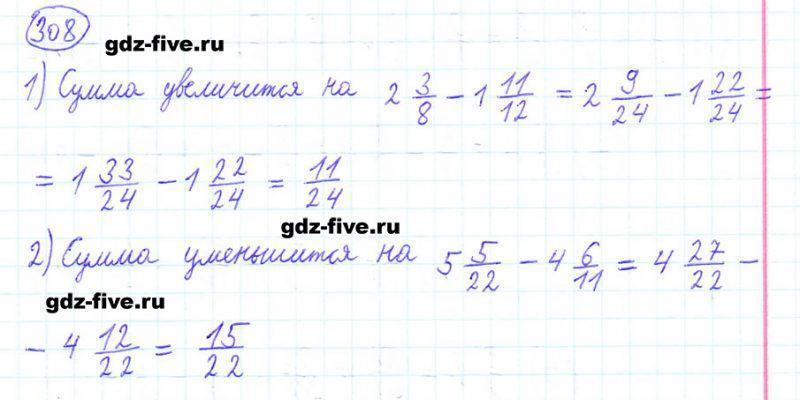 308
gdz-five.ru
1) Сумма увеличится на 2 3/8 − 1 11/12 = 2 9/24 − 1 22/24 =
= 1 33/24 − 1 22/24 = 11/24
gdz-five.ru
2) Сумма уменьшится на 5 5/22 − 4 6/11 = 4 27/22 −
gdz-five.ru
− 4 12/22 = 15/22